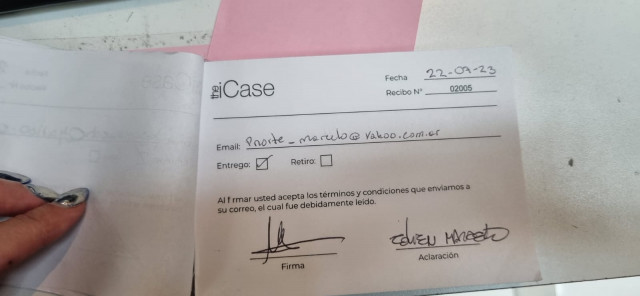 the iCase
Fecha 22-07-23
Recibo N° 02005
Email: @yahoo.com.ar
Entrego: Retiro:
Al firmar usted acepta los términos y condiciones que enviamos a
su correo, el cual fue debidamente leido.
Firma
Aclaración